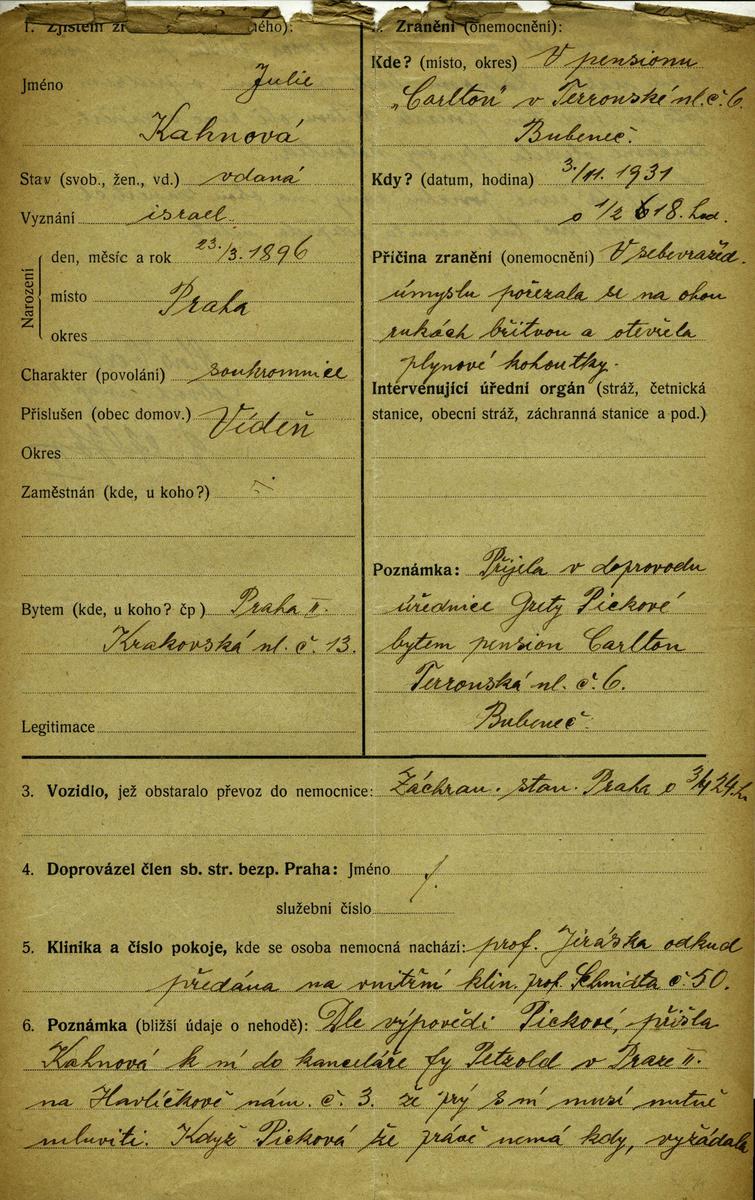 1. Zjištění
ného):
Jméno Julie
Kahnová
Stav (svob., žen., vd.) vdaná
Vyznání israel.
Narození
den, měsíc a rok 23./3. 1896
místo Praha
okres
Charakter (povolání) soukromnice
Příslušen (obec domov.) Vídeň
Okres
Zaměstnán (kde, u koho?)
Bytem (kde, u koho? čp) Praha II.
Krakovská ul. č. 13.
Legitimace
Zranění (onemocnění):
Kde? (místo, okres) V pensionu
„Carlton" v Terronské ul. č. 6.
Bubeneč.
Kdy? (datum, hodina) 3./11. 1931
o 1/2 18. hod.
Příčina zranění (onemocnění) V sebevražd.
úmyslu pořezala se na obou
rukách břitvou a otevřela
plynové kohoutky.
Intervenující úřední orgán (stráž, četnická
stanice, obecní stráž, záchranná stanice a pod.)
Poznámka: Přijela v doprovodu
úřednice Grety Pickové
bytem pension Carlton
Terronská ul. č. 6.
Bubeneč.
3. Vozidlo, jež obstaralo převoz do nemocnice: Záchran. stan. Praha o 3/4 24. h
4. Doprovázel člen sb. str. bezp. Praha: Jméno /.
služební číslo
5. Klinika a číslo pokoje, kde se osoba nemocná nachází: prof. Jiráska odkud
předána na vnitřní klin. prof. Schmidta č. 50.
6. Poznámka (bližší údaje o nehodě): Dle výpovědi Pickové, přišla
Kahnová k ní do kanceláře fy Petzold v Praze II.
na Havlíčkově nám. č. 3. že prý s ní musí nutně
mluviti. Když Picková že právě nemá kdy, vyžádala